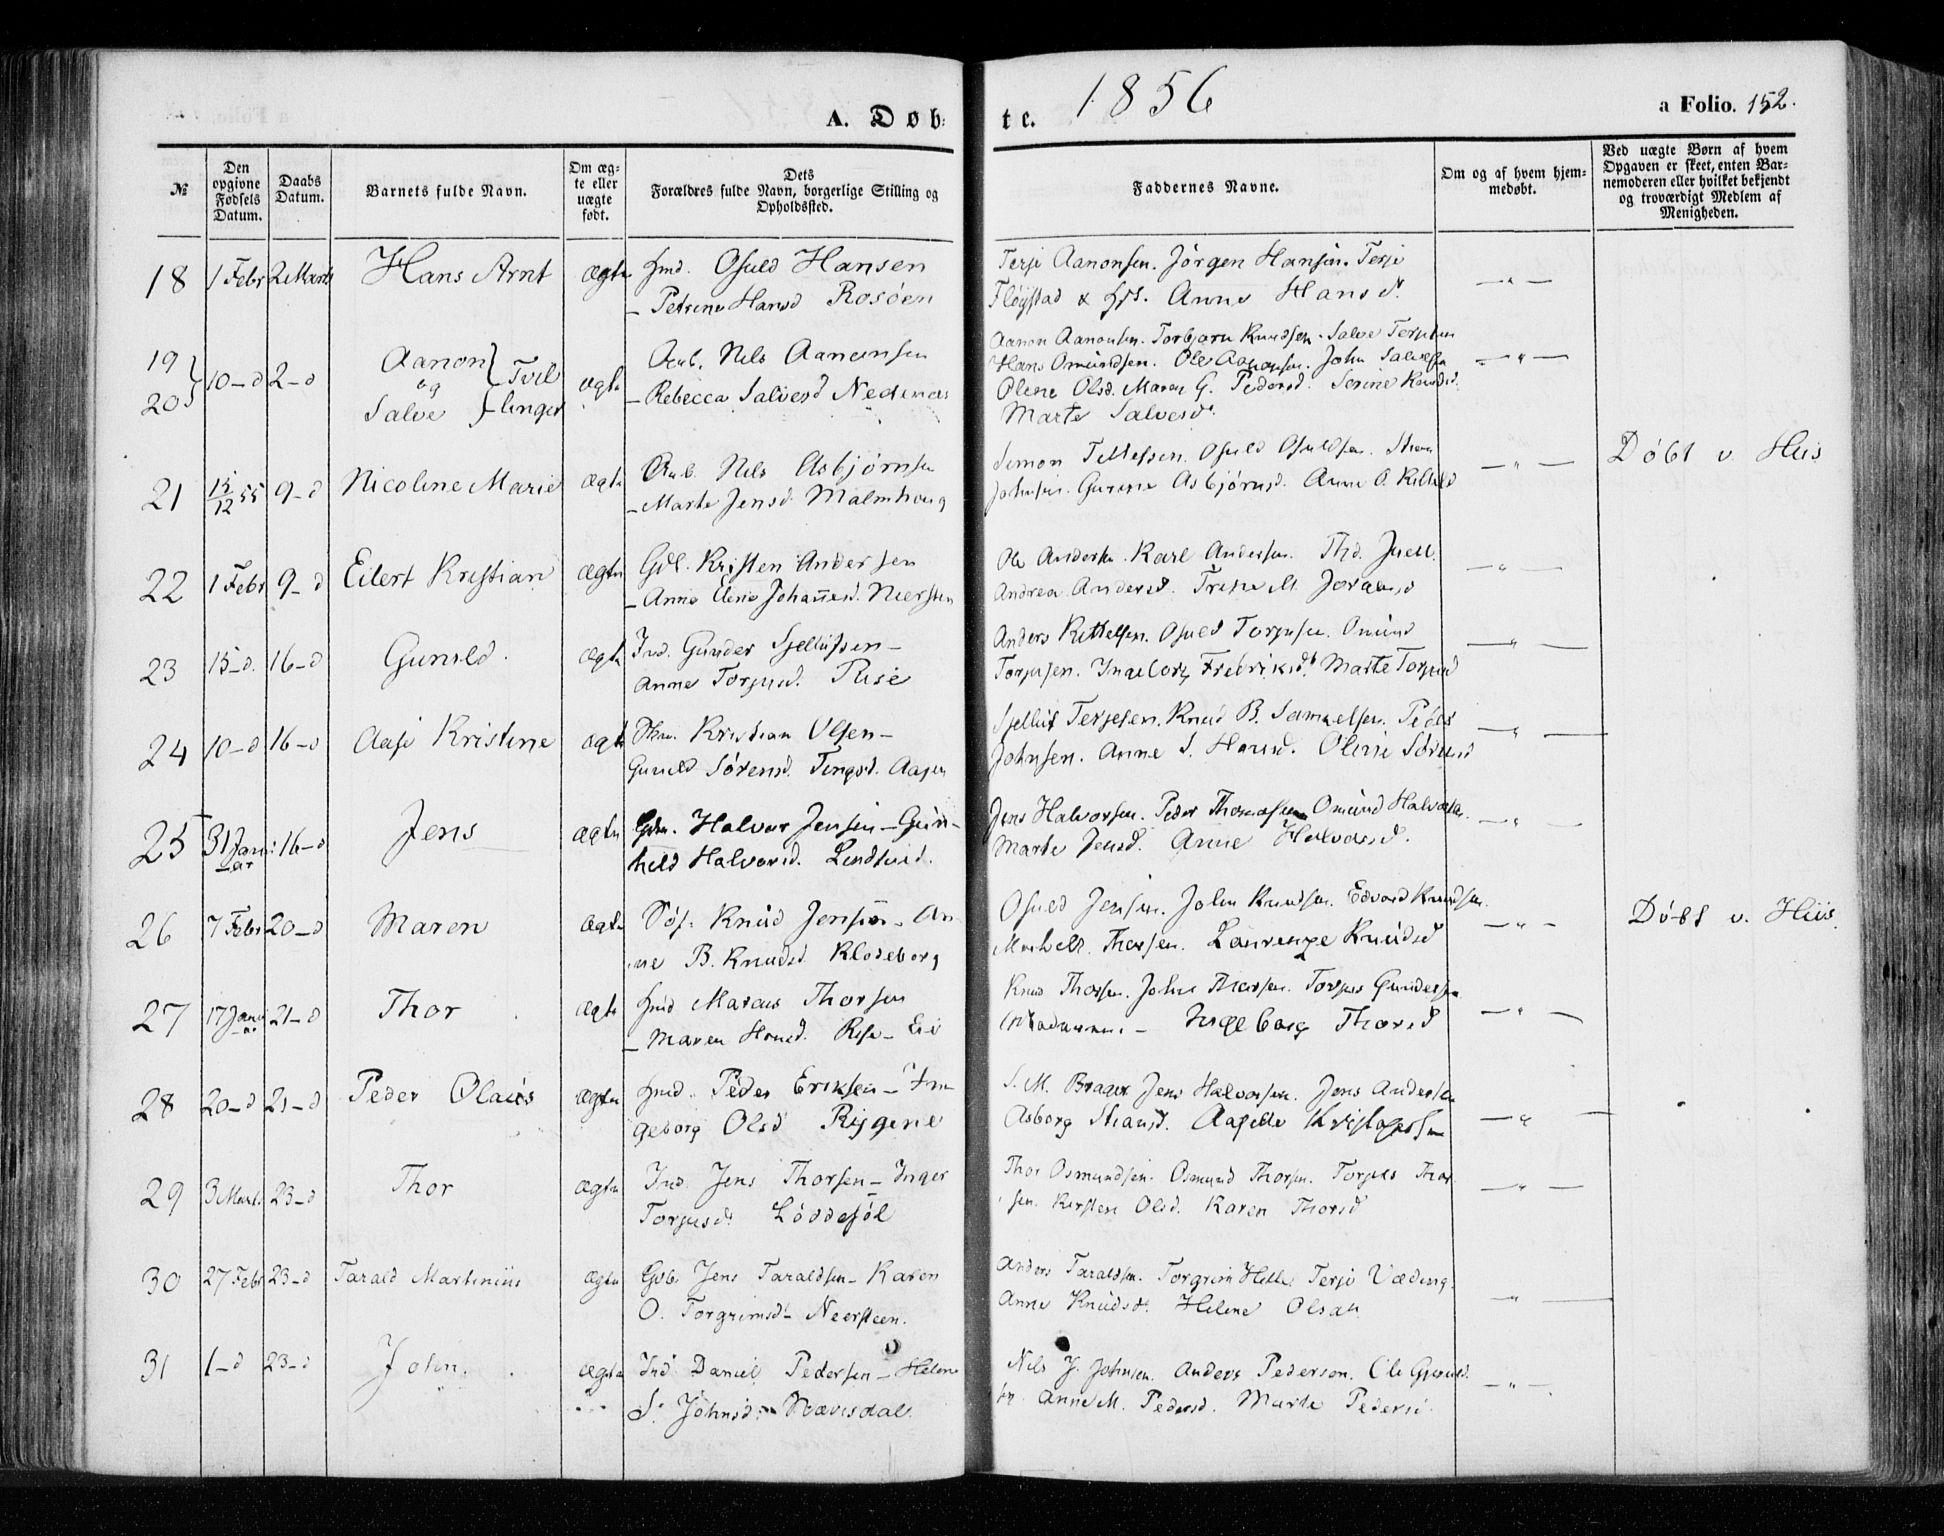 A. Døb=
te. 1856
a Folio. 152.
№
Den opgivne Fødsels Datum.
Daabs Datum.
Barnets fulde Navn.
Om æg-te eller uægte født.
Dets Forældres fulde Navn, borgerlige Stilling og Opholdssted.
Faddernes Navne.
Om og af hvem hjem-medøbt.
Ved uægte Børn af hvem Opgaven er skeet, enten Bar-nemoderen eller hvilket bekjendt og troværdigt Medlem af Menigheden.
18 1 Febr 2 Marts Hans Arnt ægte Osuld Hansen
– Petrine Hansd Rosöen
Terje Aanonsen. Jörgen Hansen. Terje
Flöystad & Anne Hansd.
19 20 10–d 2–d Aanon og Salve } Tvil-linger ægte Nils Aanonsen
– Rebecca Salvesd Nedenæs
Aanon Aanonsen. Torbjørn Knudsen. Salve Terjesen
Hans Omundsen. Ole Aanonsen. John Salvesen
Olene Olsd. Maren G. Pedersd. Serine Knudsd.
Marte Salvesd.
21 15/12 55 9–d Nicoline Marie ægte Nils Asbjörnsen
– Marte Jensd. Malmhoug
Simon Tellefsen. Osuld Osuldsen.
Johnsen. Gurine Asbjörnsd. Anne O.
Döbt v. Huus
22 1 Febr 9–d Eilert Kristian ægte Gdl. Kristen Andersen
– Anne Elene Johannesd. Nersten
Ole Andersen. Karl Andersen. Thd. Juell
Andrea Andersd. Trine M.
23 15–d. 16–d Gunild. ægte Ind. Gunder Sjellufsen –
Anne Torjusd. Rise
Anders Kittelsen. Osuld Torjusen. Omund
Torjusen. Ingeborg Fredriksd. Marte Torjusd
24 10–d 16–d Aase Kristine ægte Kristian Olsen –
Gunild Sörensd. Aasen
Sjelluf Terjesen. Knud B. Samuelsen. Peder
Johnsen. Anne S. Hansd. Oline Sörensd
25 31 Januar 16–d Jens ægte Halvor Jensen – Gun-
hild Halvorsd. Lindtveid.
Jens Halvorsen. Peder Thomassen Omund Halvorsen.
Marte Jensd. Anne Halvorsd.
26 7 Febr 20–d Maren ægte Söf: Knud Jensen – An
ne B. Knudsd. Klodeborg
Osuld Jensen. John Knudsen. Edvard Knudsen.
Thorsen. Laurense Knudsd
Döbt v. Huus
27 17 Januar 21–d Thor ægte Marcus Thorsen
– Maren Hansd. Rise – Eie
Knud Thorsen. John Thorsen. Torjus Gundersen
– Ingeborg Thorsd
28 20–d 21–d Peder Olaus ægte Peder Eriksen – In-
geborg Olsd Rygene
S. M. Brager Jens Halvorsen. Jens Andersen
Asborg
29 3 Marts. 23–d Thor ægte Ind. Jens Thorsen – Inger
Torjusd. Löddesöl
Thor Osmundsen. Osmund Thorsen. Torjus Thor
sen. Kirsten Olsd. Karen Thorsd
30 27 Febr 23–d Tarald Martinius ægte Jens Taraldsen – Karen
O. Torgrimsd – Neersteen.
Anders Taraldsen. Torgrim Helle. Terje Væding.
Anne Knudsd. Helene Olsen
31 1–d 23–d John. ægte Ind Daniel Pedersen – Helene
S. Johnsd: – Nævisdal.
Nils J. Johnsen. Anders Pedersen. Ole
sen. Anne M. Pedersd. Marte Pedersd.